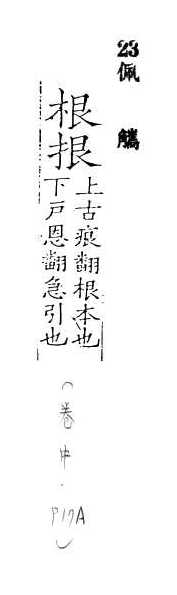 23佩觿
根㧡
上古痕翻根本也
下戸恩翻急引也
(卷中.P17A)